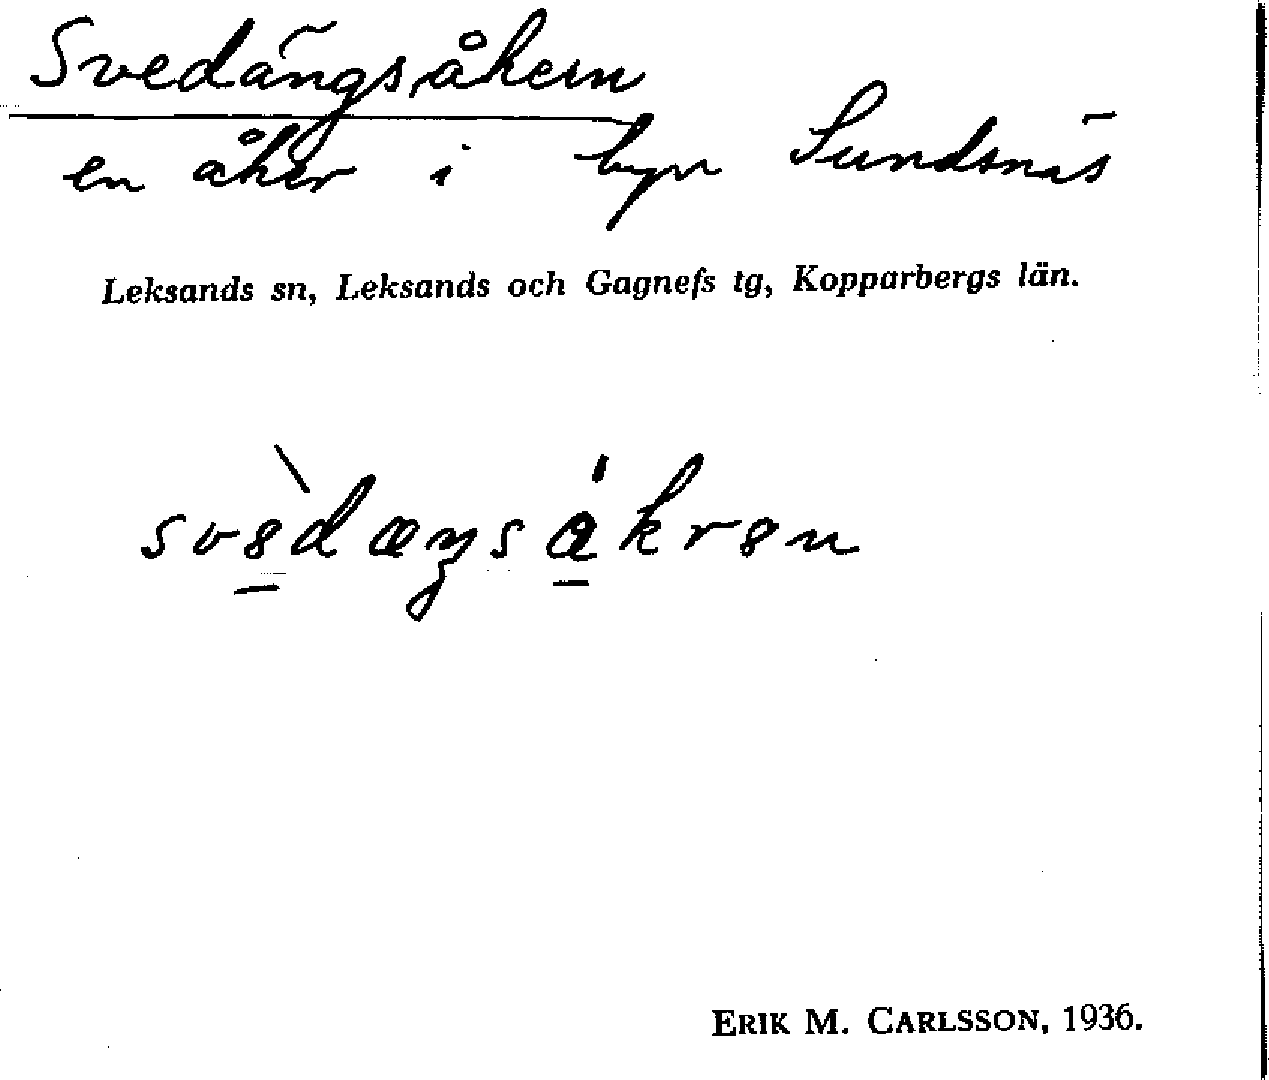 Svedängsåkern
en åker i byn Sundsnäs
Leksands sn, Leksands och Gagnefs tg, Kopparbergs län.
ERIK M. CARLSSON, 1936.